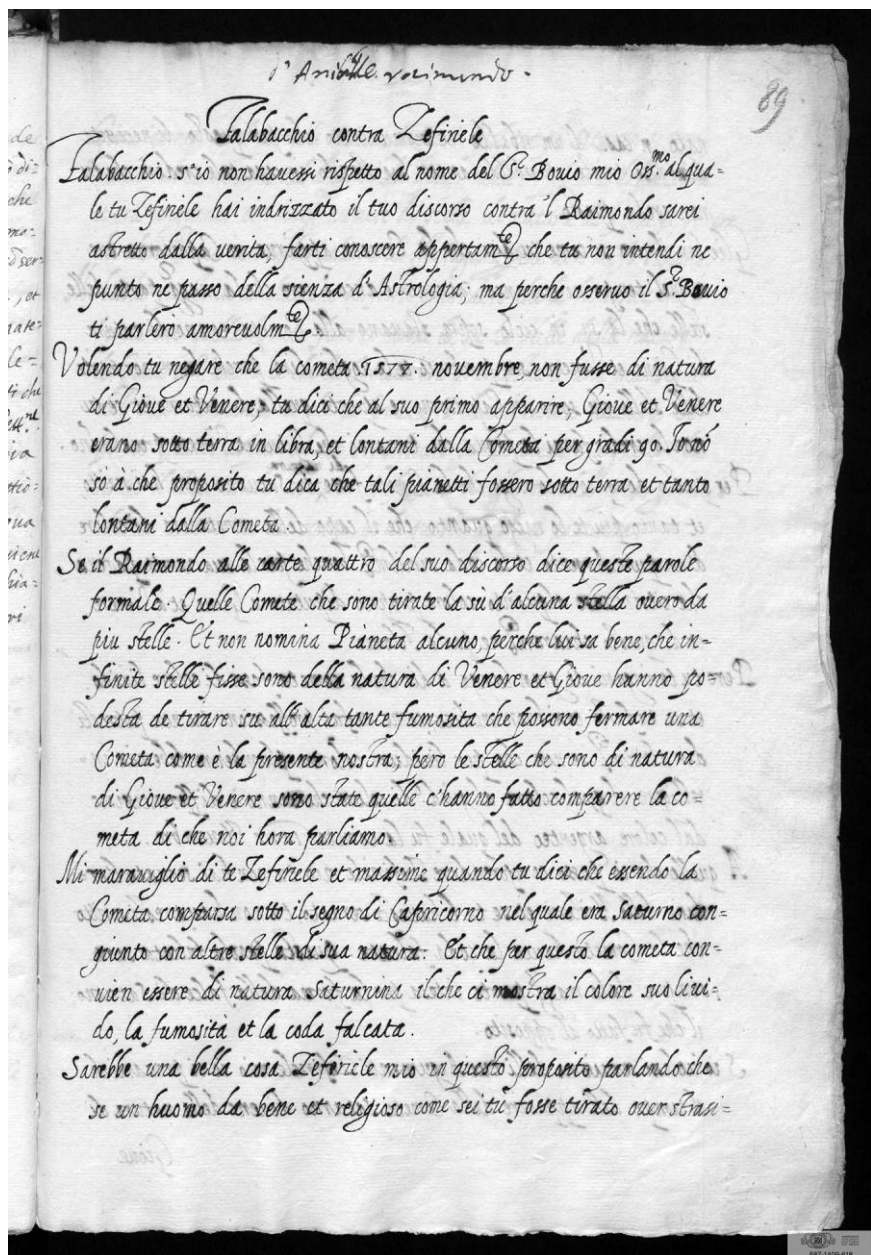 d'Anibale raimundo.
89
Falabacchio contra Zefiriele
Falabacchio. s'io non havessi rispetto al nome del S.r Bovio mio Oss.mo al qua-
le tu Zefiriele hai indrizzato il tuo discorso contra 'l Raimondo sarei
astretto dalla verita, farti conoscere appertam.te che tu non intendi ne
punto ne passo della scienza d'Astrologia; ma perche osservo il S.r Bovio
ti parlerò amorevolm.te
Volendo tu negare che la cometa .1577. novembre, non fusse di natura
di Giove et Venere; tu dici che al suo primo apparire, Giove et Venere
erano sotto terra in libra, et lontani dalla Cometa per gradi 90. Io nō
sò à che proposito tu dica che tali pianetti fossero sotto terra et tanto
lontani dalla Cometa.
Se il Raimondo alle carte quattro del suo discorso dice queste parole
formale. Quelle Comete che sono tirate la sù d'alcuna stella overo da
piu stelle. Et non nomina Pianeta alcuno, perche lui sa bene, che in-
finite stelle fisse sono della natura di Venere et Giove hanno po-
desta de tirare su all'alta tante fumosita che possono fermare una
Cometa come è la presente nostra; pero le stelle che sono di natura
di Giove et Venere sono state quelle c'hanno fatto comparere la co-
meta di che noi hora parliamo.
Mi maraviglio di te Zefiriele et massime quando tu dici che essendo la
Cometa comparsa sotto il segno di Capricorno nel quale era Saturno con-
giunto con altre stelle di sua natura. Et che per questo la cometa con-
vien essere di natura Saturnina il che ci mostra il colore suo livi-
do, la fumosità et la coda falcata.
Sarebbe una bella cosa Zefiriele mio in questo proposito parlando che
se un huomo da bene et religioso come sei tù fosse tirato over strasi-